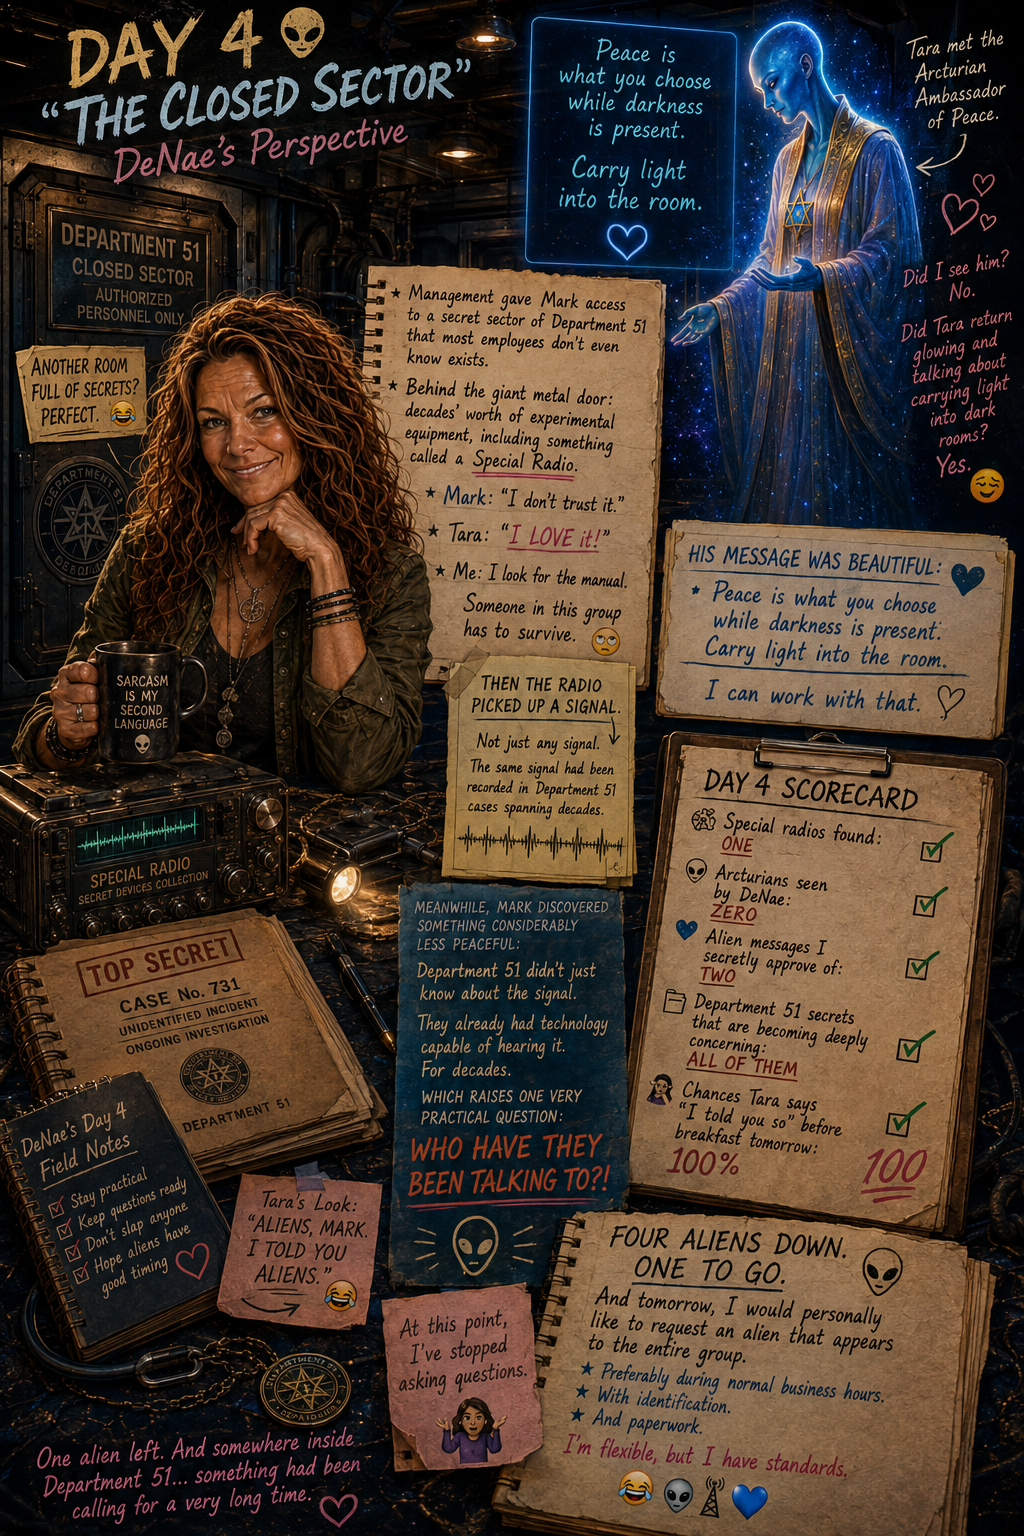 DAY 4 👽
"THE CLOSED SECTOR"
DeNae's Perspective
DEPARTMENT 51
CLOSED SECTOR
AUTHORIZED
PERSONNEL ONLY
ANOTHER ROOM
FULL OF SECRETS?
PERFECT. 😂
DEPARTMENT 51
SARCASM
IS MY
SECOND
LANGUAGE
Peace is
what you choose
while darkness
is present.
Carry light
into the room.
Tara met the
Arcturian
Ambassador
of Peace.
Did I see him?
No.
Did Tara return
glowing and
talking about
carrying light
into dark
rooms?
Yes.
😌
★ Management gave Mark access
to a secret sector of Department 51
that most employees don't even
know exists.
★ Behind the giant metal door:
decades' worth of experimental
equipment, including something
called a Special Radio.
★ Mark: "I don't trust it."
★ Tara: "I LOVE it!"
★ Me: I look for the manual.
Someone in this group
has to survive. 🙄
HIS MESSAGE WAS BEAUTIFUL:
• Peace is what you choose
while darkness is present.
Carry light into the room.
I can work with that.
THEN THE RADIO
PICKED UP A SIGNAL.
Not just any signal.
The same signal had been
recorded in Department 51
cases spanning decades.
SPECIAL RADIO
SECRET DEVICES COLLECTION
MEANWHILE, MARK DISCOVERED
SOMETHING CONSIDERABLY
LESS PEACEFUL:
Department 51 didn't just
know about the signal.
They already had technology
capable of hearing it.
For decades.
WHICH RAISES ONE VERY
PRACTICAL QUESTION:
WHO HAVE THEY
BEEN TALKING TO?!
DAY 4 SCORECARD
Special radios found:
ONE
Arcturians seen
by DeNae:
ZERO
Alien messages I
secretly approve of:
TWO
Department 51 secrets
that are becoming deeply
concerning:
ALL OF THEM
Chances Tara says
"I told you so" before
breakfast tomorrow:
100%
100
TOP SECRET
CASE No. 731
UNIDENTIFIED INCIDENT
ONGOING INVESTIGATION
DEPARTMENT 51
DeNae's Day 4
Field Notes
Stay practical
Keep questions ready
Don't slap anyone
Hope aliens have
good timing
Tara's Look:
"ALIENS, MARK.
I TOLD YOU
ALIENS."
😂
At this point,
I've stopped
asking questions.
🤷‍♀️
FOUR ALIENS DOWN.
ONE TO GO.
And tomorrow, I would personally
like to request an alien that appears
to the entire group.
★ Preferably during normal business hours.
★ With identification.
★ And paperwork.
I'm flexible, but I have standards.
😂👽📡💙
One alien left. And somewhere inside
Department 51... something had been
calling for a very long time.